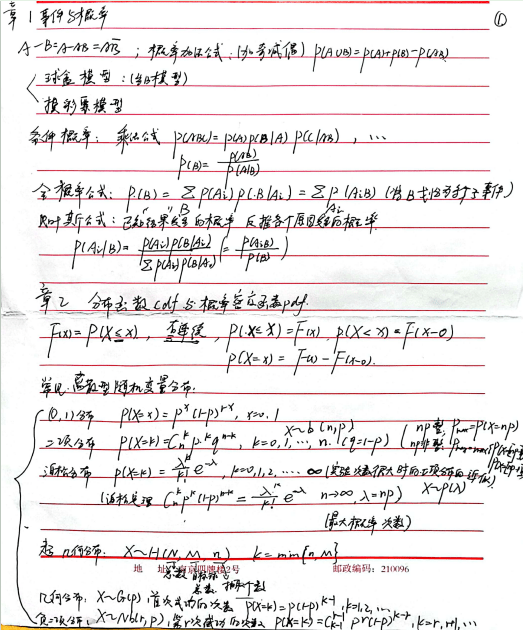 章1 事件与概率 ①
A-B=A-AB=AB̅ ; 概率加法公式: (加奇减偶) P(A∪B)=P(A)+P(B)-P(AB)
球盒模型: (占B模型)
摸彩票模型
条件概率: 乘法公式 P(ABC)=P(A)P(B|A)P(C|AB), …
P(B)= P(AB)/P(A|B)
全概率公式: P(B)=ΣP(Ai)P(B|Ai)=ΣP(AiB) (将B式化为若干事件)
贝叶斯公式: 已知"结果"发生的概率 反推各个原因发生的概率
B Ai
P(Ai|B)= P(Ai)P(B|Ai)/ΣP(Ai)P(B|Ai) (= P(AiB)/P(B))
章2 分布函数cdf与概率密度函数pdf.
F(x)=P(X≤x), 右连续 P(X≤x)=F(x), P(X<x)=F(x-0)
P(X=x)=F(x)-F(x-0).
常见离散型随机变量分布.
(0,1)分布 P(X=x)=pˣ(1-p)¹⁻ˣ, x=0.1
X~b(n,p)
二项分布 P(X=k)=Cₙᵏpᵏqⁿ⁻ᵏ, k=0,1,…,n. (q=1-p) (np整, Pmax=P(X=np)
泊松分布 P(X=k)=λᵏ/k! e^-λ, k=0,1,2,…∞ (实验次数很大时的二项分布的近似)
(泊松定理 Cₙᵏpᵏ(1-p)ⁿ⁻ᵏ=λᵏ/k! e^-λ n→∞ λ=np) X~P(λ)
(最大概率次数)
超几何分布. X~H(N,M,n) k=min{n,M}
地 址: 南京四牌楼2号 邮政编码: 210096
总数
几何分布: X~G(p), 首次成功的次数 P(X=k)=p(1-p)ᵏ⁻¹, k=1,2,…
负二项分布: X~Nb(r,p), 第r次成功的次数 P(X=k)=C pʳ(1-p)ᵏ⁻ʳ, k=r,r+1,…